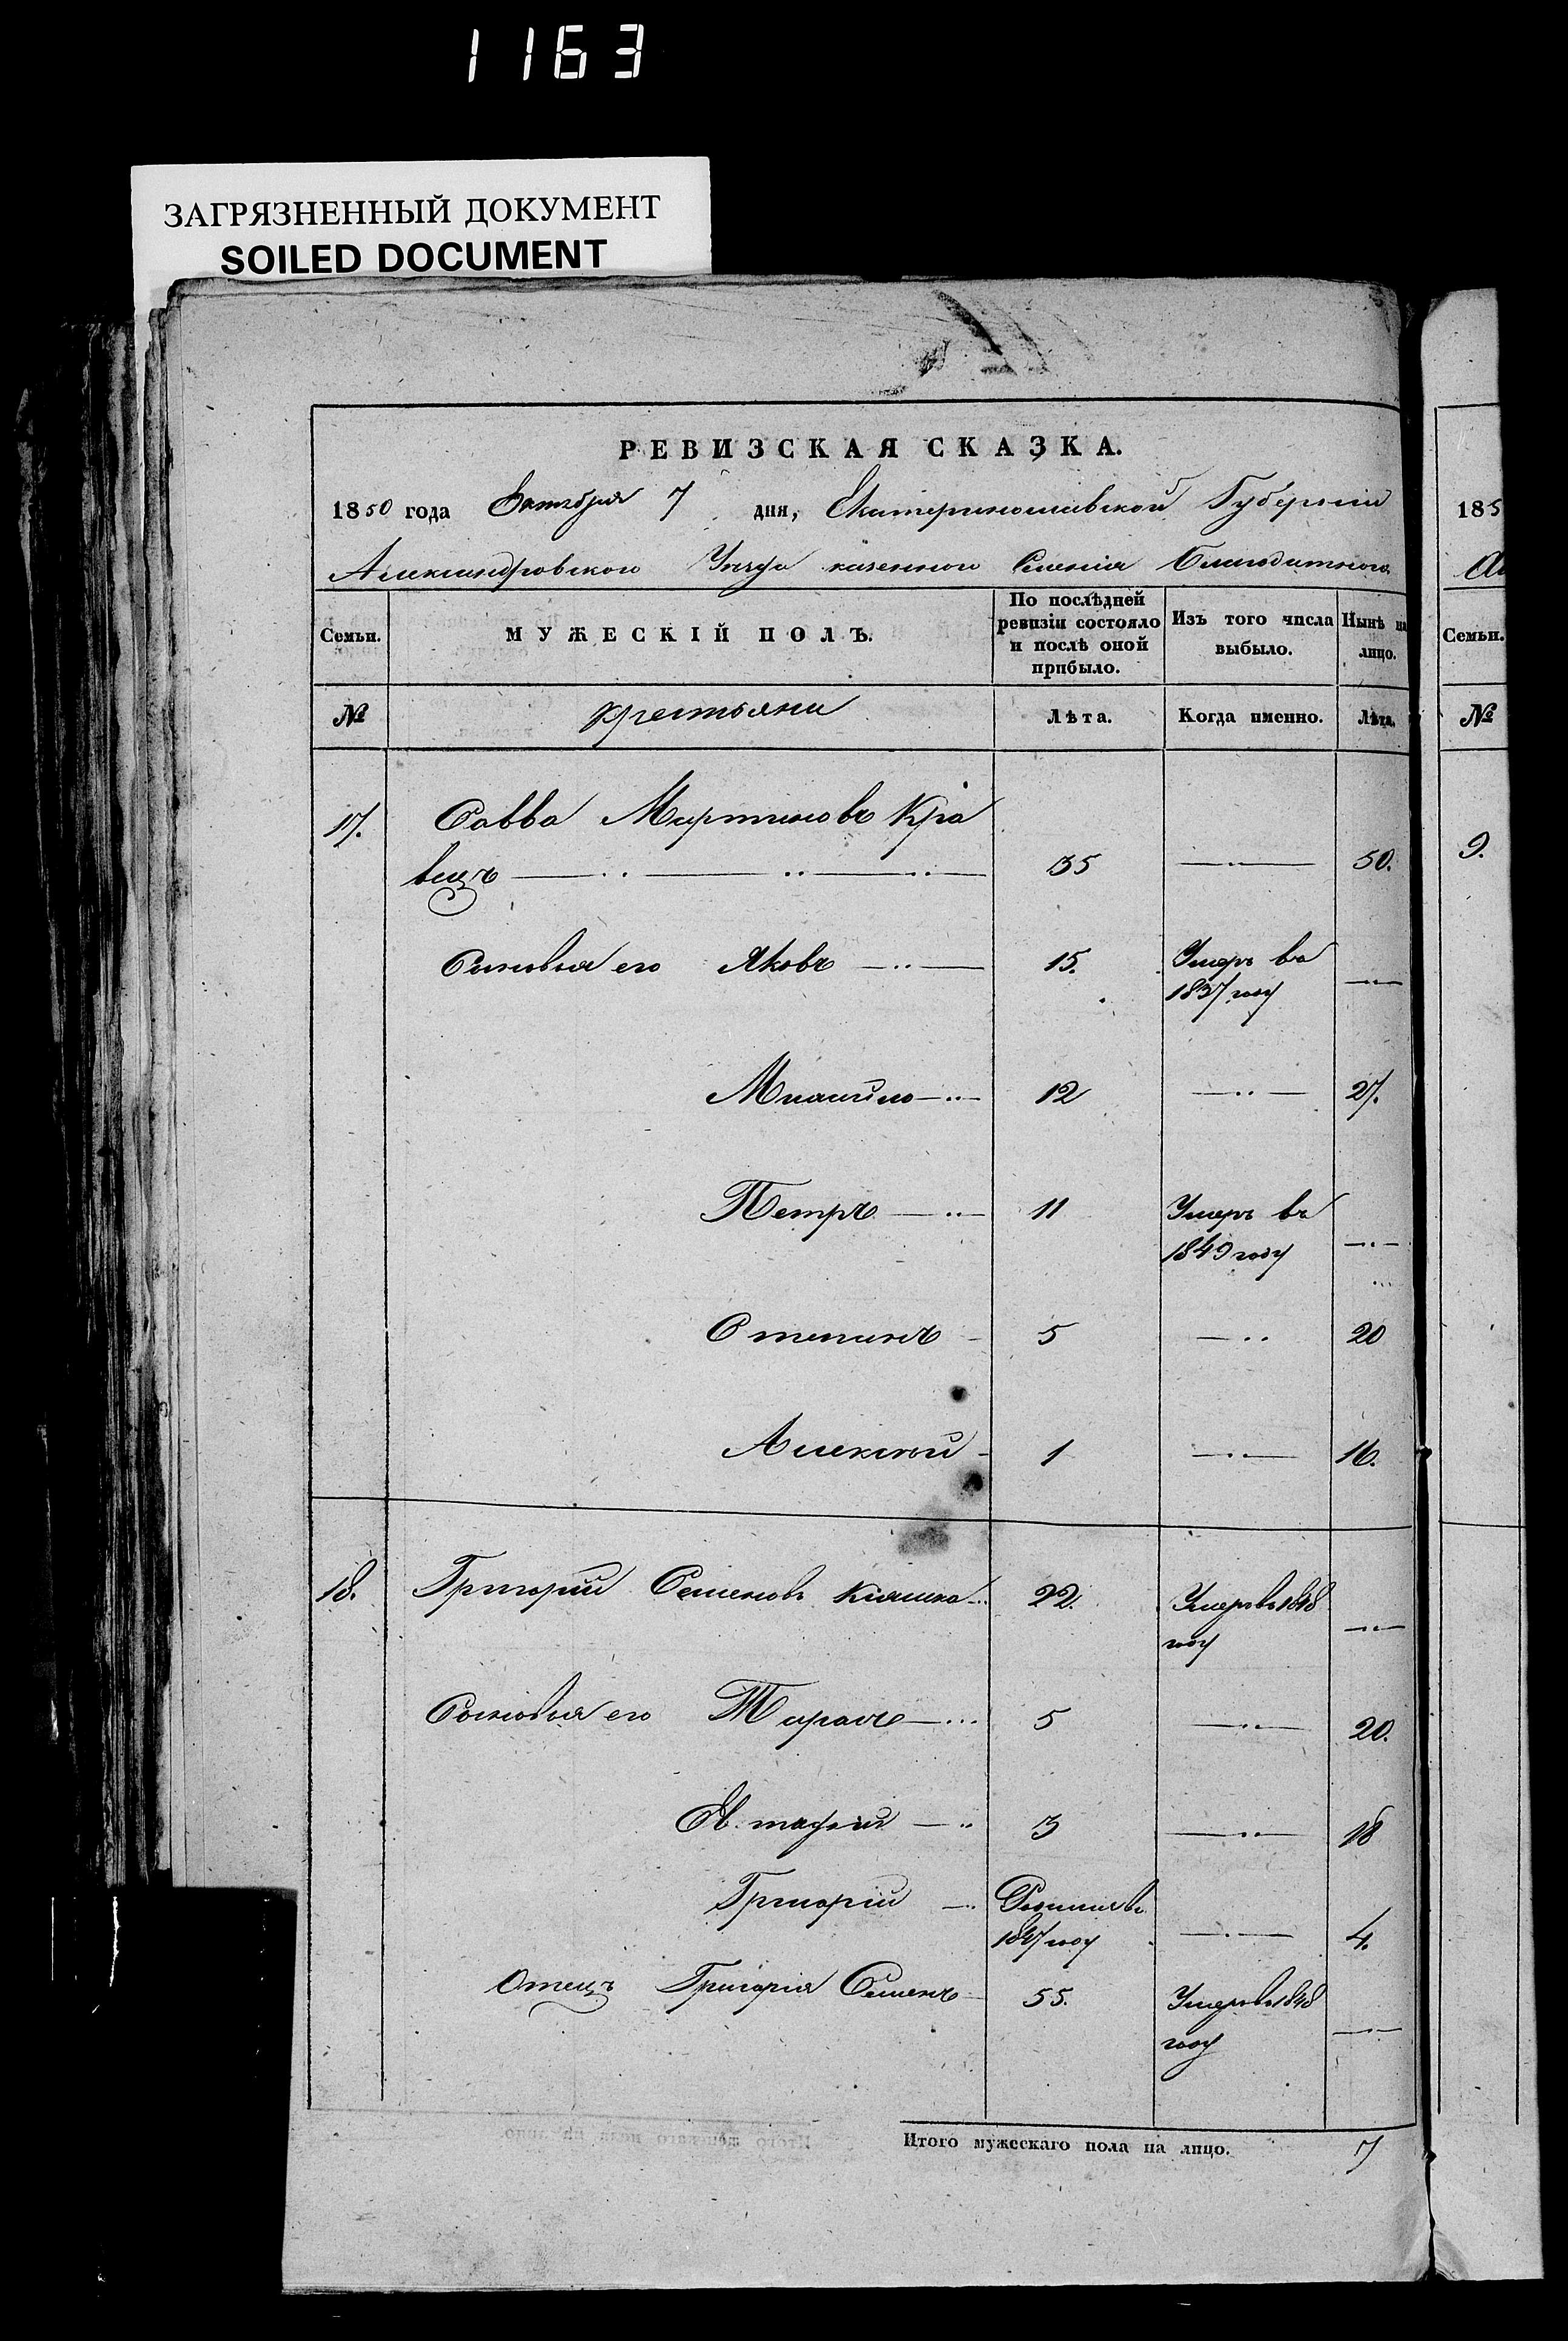 1163
ЗАГРЯЗНЕННЫЙ ДОКУМЕНТ
SOILED DOCUMENT
РЕВИЗСКАЯ СКАЗКА.
1850 года Октября 7 дня, Екатеринославской Губернии
Александровского Уезда казенного Селения Благодатного
Семьи. МУЖЕСКІЙ ПОЛЪ. По послѣдней ревизіи состояло и послѣ оной прибыло. Изъ того числа выбыло. Нынѣ на лицо.
№ крестьяни Лѣта. Когда именно. Лѣта.
17. Савва Мартиновъ Кра
вецъ 35 50.
Сыновья его Яковъ 15. Умеръ въ
1837 году
Михайло 12 27.
Петръ 11 Умеръ въ
1849 году
Степанъ 5 20
Алексей 1 16.
18. Григорий Семеновъ Кияшко 22. Умеръ въ 1848
году
Сыновья его Тарасъ 5 20.
Евтафий 3 18
Григорий Родился въ
1847 году 4.
Отецъ Григория Семенъ 55. Умеръ въ 1848
году
Итого мужескаго пола на лицо. 7
185
Семьи.
№
9.